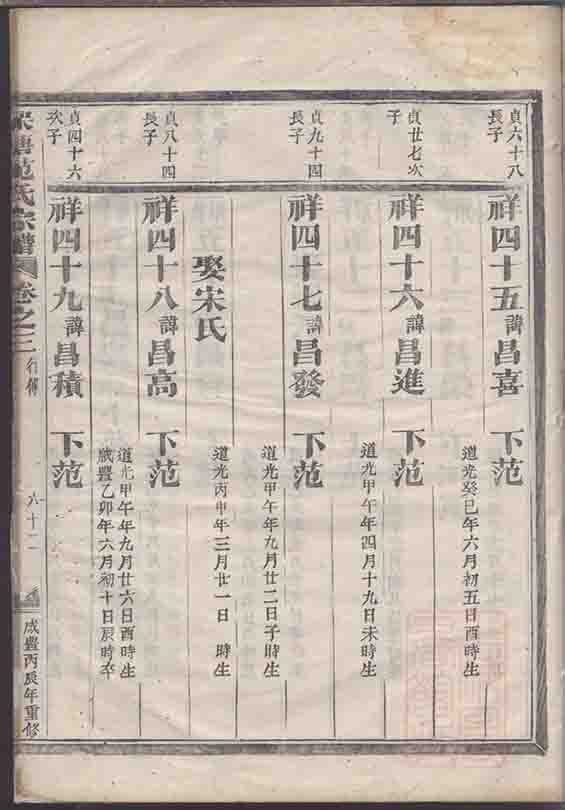 貞六十八
長子
祥四十五諱昌喜 下范
道光癸巳年六月初五日酉時生
貞廿七次
子
祥四十六諱昌進 下范
道光甲午年四月十九日未時生
貞九十四
長子
祥四十七諱昌發 下范
道光甲午年九月廿二日子時生
娶宋氏
道光丙申年三月廿一日 時生
貞八十四
長子
祥四十八諱昌高 下范
道光甲午年九月廿六日酉時生
咸豐乙卯年六月初十日辰時卒
貞四十六
次子
祥四十九諱昌積 下范
范氏宗譜 卷之三 行傳 六十二 咸豐丙辰年重修